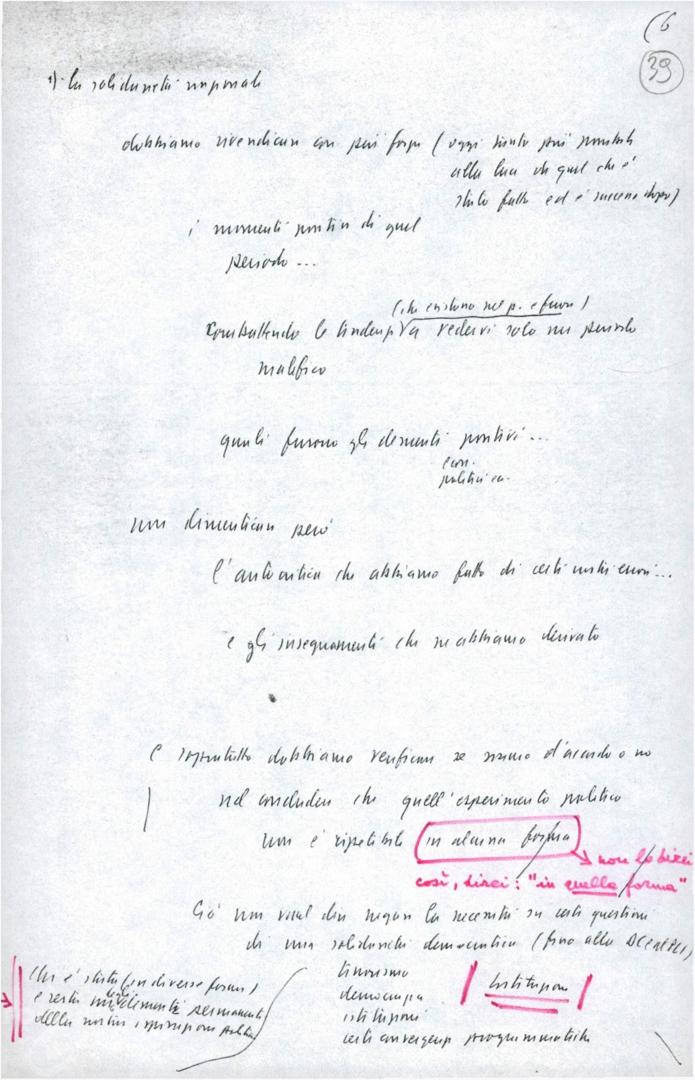 (6
39
1) la solidarietà nazionale
dobbiamo rivendicare con più forza (oggi siamo più
alla luce di quel che è
stato fatto ed è successo dopo)
i momenti positivi di quel
periodo...
(che esistono nel p. e fuori)
combattendo le tendenze a vedervi solo un periodo
malefico
quali furono gli elementi positivi...
econ.
politici ecc.
non dimenticare però
l'autocritica che abbiamo fatto di certi nostri errori...
e gli insegnamenti che ne abbiamo derivato
e soprattutto dobbiamo verificare se siamo d'accordo o no
nel concludere che quell'esperimento politico
non è ripetibile in alcuna forma
non lo direi
così, direi: "in quella forma"
Ciò non vuol dire negare la necessità su certe questioni
di una solidarietà democratica (fino alla DC e al PLI)
che è stata (in diverse forme)
e resta elemento permanente
della nostra ispirazione politica
terrorismo
democrazia
istituzioni
certe convergenze programmatiche
Istituzioni